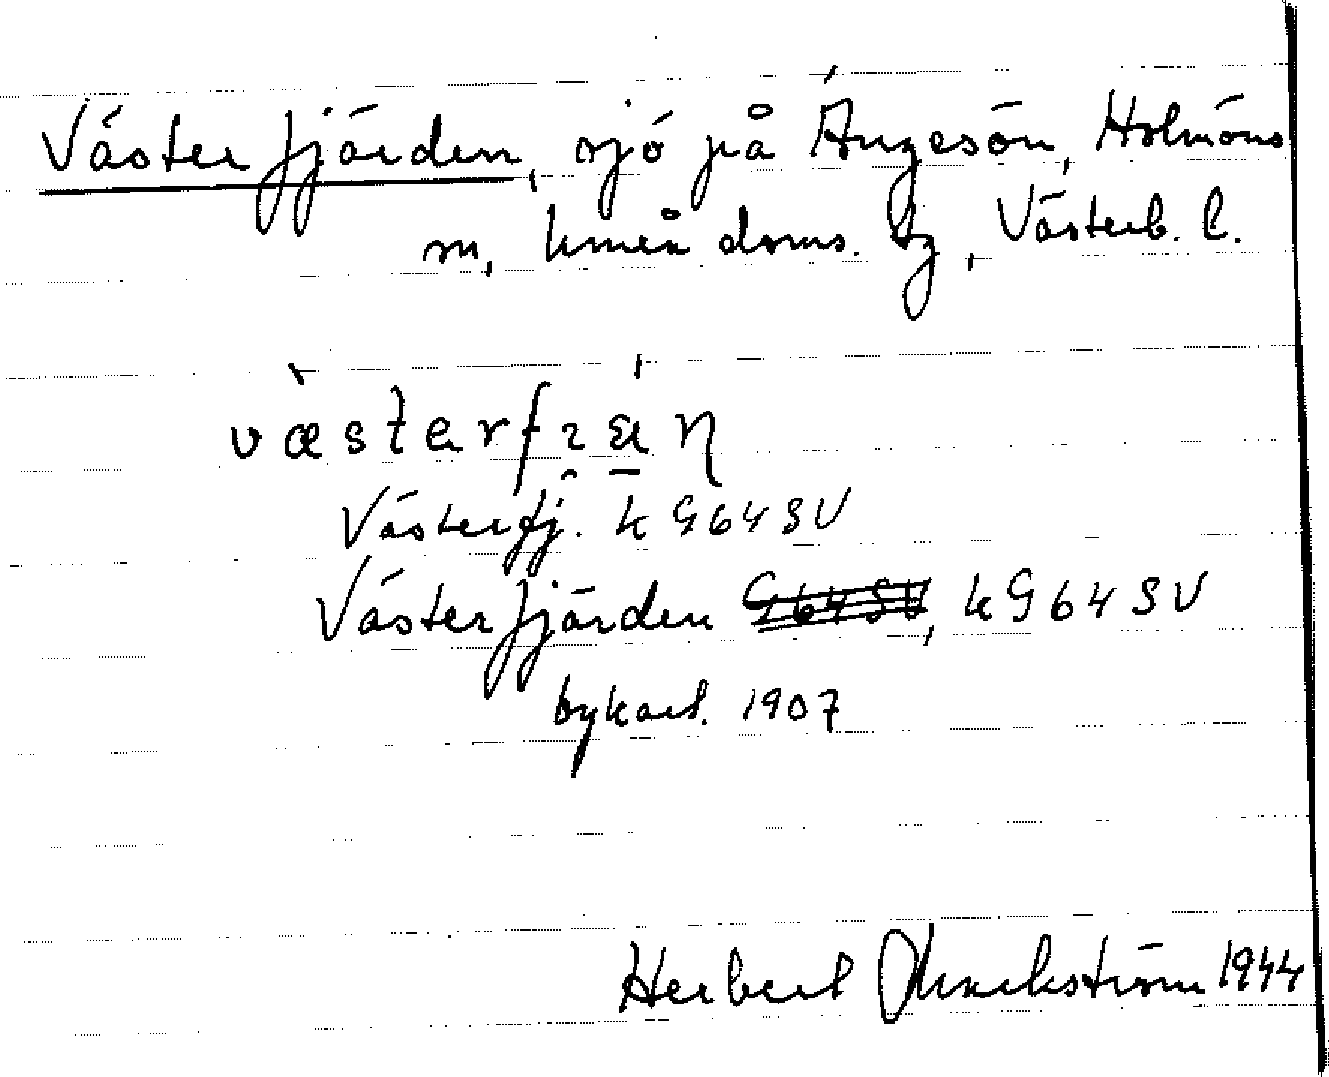 Västerfjärden, sjö på Ängesön, Holmöns
m, Umeå doms. tg, Västerb. l.
Västerfj. k G64SV
Västerfjärden G64SV, k G64SV
bykart. 1907
Herbert 1944